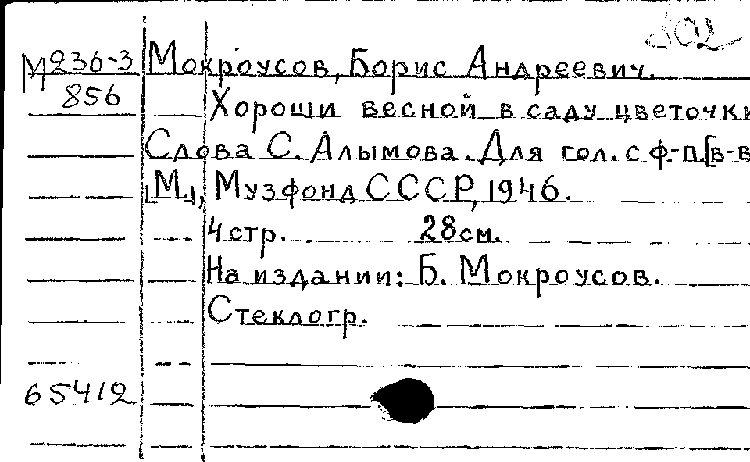 302
М 236-3 Мокроусов, Борис Андреевич.
856 Хороши весной в саду цветочки
Слова С. Алымова. Для гол. с ф-п. [в-в
[М.], Музфонд СССР, 1946.
4 стр. 28 см.
На издании: Б. Мокроусов.
Стеклогр.
65412